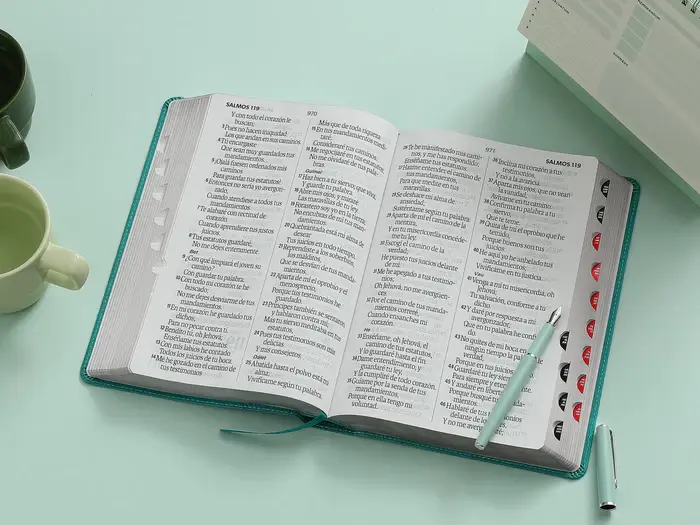 SALMOS 119
970
Y con todo el corazón le
buscan;
3 Pues no hacen iniquidad
Los que andan en sus caminos.
4 Tú encargaste
Que sean muy guardados tus
mandamientos.
5 ¡Ojalá fuesen ordenados mis
caminos
Para guardar tus estatutos!
6 Entonces no sería yo avergon-
zado,
Cuando atendiese a todos tus
mandamientos.
7 Te alabaré con rectitud de
corazón
Cuando aprendiere tus justos
juicios.
8 Tus estatutos guardaré;
No me dejes enteramente.
Bet
9 ¿Con qué limpiará el joven su
camino?
Con guardar tu palabra.
10 Con todo mi corazón te he
buscado;
No me dejes desviarme de tus
mandamientos.
11 En mi corazón he guardado tus
dichos,
Para no pecar contra ti.
12 Bendito tú, oh Jehová;
Enséñame tus estatutos.
13 Con mis labios he contado
Todos los juicios de tu boca.
14 Me he gozado en el camino de
tus testimonios
Más que de toda riqueza.
15 En tus mandamientos medi-
taré;
Consideraré tus caminos.
16 Me regocijaré en tus estatutos;
No me olvidaré de tus pala-
bras.
Guímel
17 Haz bien a tu siervo; que viva,
Y guarde tu palabra.
18 Abre mis ojos, y miraré
Las maravillas de tu ley.
19 Forastero soy yo en la tierra;
No encubras de mí tus man-
damientos.
20 Quebrantada está mi alma de
desear
Tus juicios en todo tiempo.
21 Reprendiste a los soberbios,
los malditos,
Que se desvían de tus manda-
mientos.
22 Aparta de mí el oprobio y el
menosprecio,
Porque tus testimonios he
guardado.
23 Príncipes también se sentaron
y hablaron contra mí;
Mas tu siervo meditaba en tus
estatutos,
24 Pues tus testimonios son mis
delicias
Y mis consejeros.
Dálet
25 Abatida hasta el polvo está mi
alma;
Vivifícame según tu palabra.
971
SALMOS 119
26 Te he manifestado mis cami-
nos, y me has respondido;
Enséñame tus estatutos.
27 Hazme entender el camino de
tus mandamientos,
Para que medite en tus
maravillas.
28 Se deshace mi alma de
ansiedad;
Susténtame según tu palabra.
29 Aparta de mí el camino de la
mentira,
Y en tu misericordia concéde-
me tu ley.
30 Escogí el camino de la
verdad;
He puesto tus juicios delante
de mí.
31 Me he apegado a tus testimo-
nios;
Oh Jehová, no me avergüen-
ces.
32 Por el camino de tus manda-
mientos correré,
Cuando ensanches mi
corazón.
He
33 Enséñame, oh Jehová, el
camino de tus estatutos,
Y lo guardaré hasta el fin.
34 Dame entendimiento, y
guardaré tu ley,
Y la cumpliré de todo corazón.
35 Guíame por la senda de tus
mandamientos,
Porque en ella tengo mi
voluntad.
36 Inclina mi corazón a tus
testimonios,
Y no a la avaricia.
37 Aparta mis ojos, que no vean
la vanidad;
Avívame en tu camino.
38 Confirma tu palabra a tu
siervo,
Que te teme.
39 Quita de mí el oprobio que he
temido,
Porque buenos son tus
juicios.
40 He aquí yo he anhelado tus
mandamientos;
Vivifícame en tu justicia.
Vau
41 Venga a mí tu misericordia, oh
Jehová;
Tu salvación, conforme a tu
dicho.
42 Y daré por respuesta a mi
avergonzador,
Que en tu palabra he confia-
do.
43 No quites de mi boca en
ningún tiempo la palabra
verdad,
Porque en tus juicios
44 Guardaré tu ley
Para siempre y eternamente.
45 Y andaré en libertad,
Porque busqué tus manda-
mientos.
46 Hablaré de tus testimonios
Y no me avergonzaré;